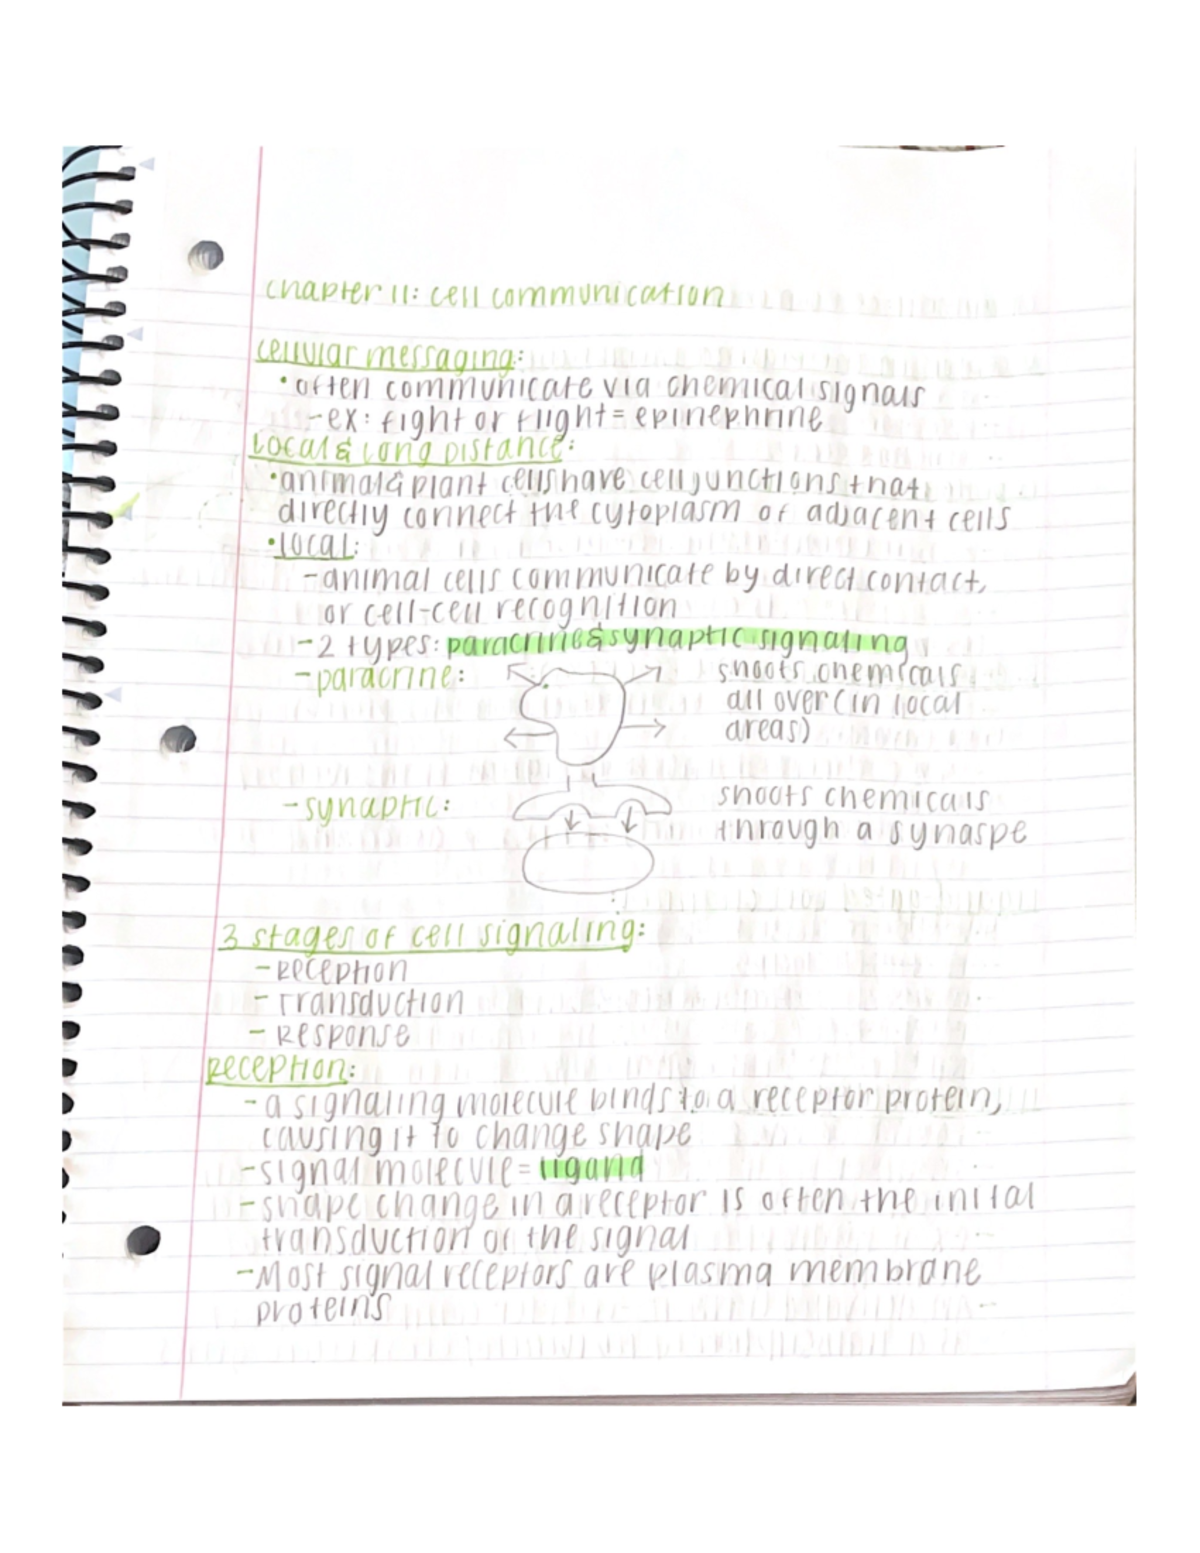 chapter 11: cell communication
cellular messaging:
•often communicate via chemical signals
-ex: fight or flight = epinephrine
Local & Long Distance:
•animal & plant cells have cell junctions that
directly connect the cytoplasm of adjacent cells
•Local:
-animal cells communicate by direct contact,
or cell-cell recognition
-2 types: paracrine & synaptic signaling
-paracrine: shoots chemicals
all over (in local
areas)
-synaptic: shoots chemicals
through a synaspe
3 stages of cell signaling:
-Reception
-Transduction
-Response
Reception:
-a signaling molecule binds to a receptor protein,
causing it to change shape
-signal molecule = ligand
-shape change in a receptor is often the inital
transduction of the signal
-Most signal receptors are plasma membrane
proteins